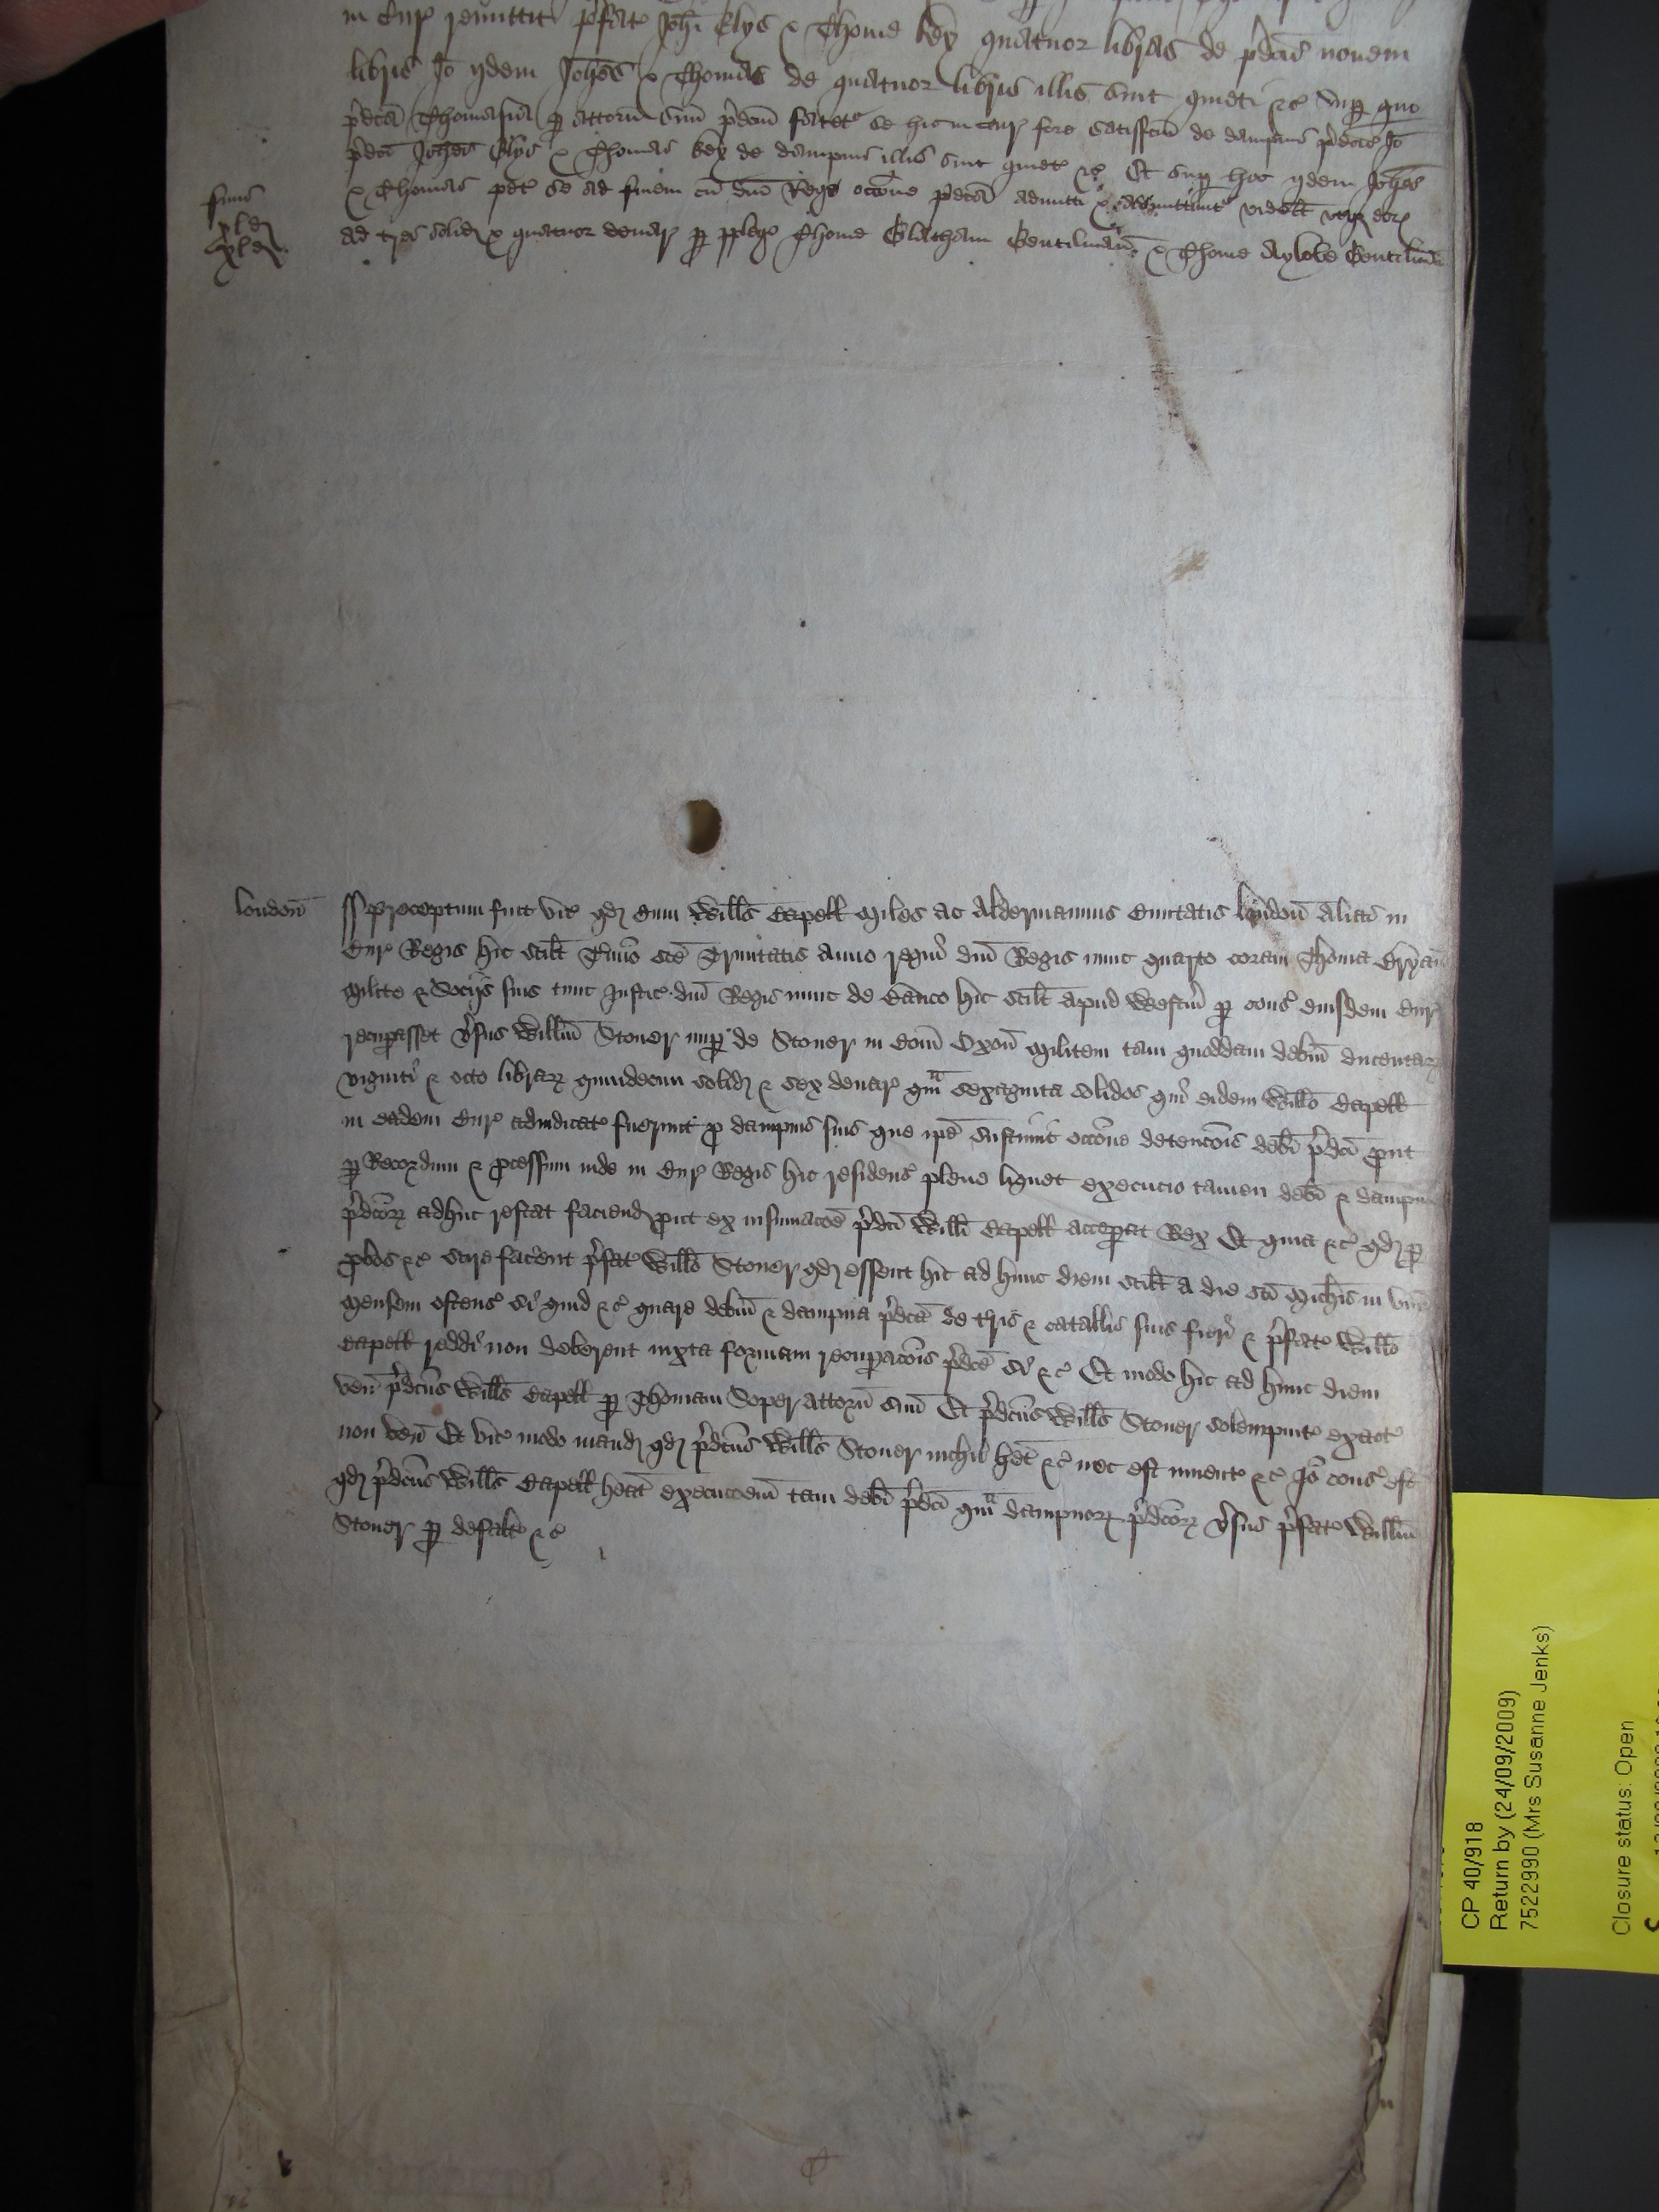 in Cur remittit p'fat Joh'i Elys & Thome Key quatuor libras de p'dcis novem
libris Io ijdem Joh'es & Thomas de quatuor libris illis sint quieti &c Sup quo
p'dca Thomasina p attorn suu p'dcm fatet se hic in cur fore satisfcm de dampnis p'dcis Io
p'dci Joh'es Elys & Thomas Key de dampnis illis sint quiet &c Et sup hoc ijdem Joh'es
& Thomas pet se ad finem cu dno Rege occone p'dca admitti & admittunt videlt utq eor
ad tres solid & quatuor denar p plleg Thome Clatham Gentilman & Thome Aylove Gentilman
finis
xl d
xl d
london
ss preceptum fuit vic qd cum Wills Capell Miles ac Aldermannus Civitatis london Alias in
Cur Regis hic scilt Tmio sce Trinitatis Anno regni dni Regis nunc quarto coram Thoma Bryan
Milite & Socijs suis tunc Justic dni Regis nunc de Banco hic scilt apud Westm p cons eiusdem Cur
recupasset v'sus Willm Stoner nup de Stoner in Com Oxon Militem tam quoddam debm ducentar
viginti & octo librar quindecim solid & sex denar qm sexaginta solidos qui eidem Willo Capell
in eadem Cur adiudicat fuerunt p dampnis suis que ipe sustinuit occone detencois debi p'dci put
p Recordum & pcessum inde in Cur Regis hic residens plene liquet execucio tamen debi & dampn
p'dcor adhuc restat faciend put ex insinuacoe p'dci Willi Capell accepat Rex Et quia &c qd p
pbos &c scire facent p'fat Willo Stoner qd essent hic ad hunc diem scilt a die sci Michis in unu
Mensem ostens si quid &c quare debm & dampna p'dca de tris & catallis suis fieri & p'fat Willo
Capell reddi non deberent iuxta formam recupacois p'dce si &c Et modo hic ad hunc diem
ven p'dcus Wills Capell p Thomam Soper attorn suu Et p'dcus Wills Stoner solempnit exact
non ven Et vic modo mand qd p'dcus Wills Stoner nichil het &c nec est invent &c Io cons est
qd p'dcus Wills Capell heat execucoem tam debi p'dci qm dampnor p'dcor v'sus p'fat Willm
Stoner p defalt &c
CP 40/918
Return by (24/09/2009)
7522990 (Mrs Susanne Jenks)
Closure status: Open